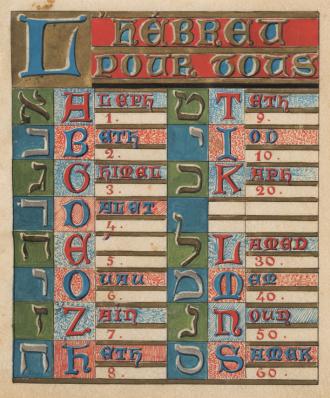 L'HÉBREU
POUR TOUS
א ALEPH
1.
ב BETH
2.
ג GHIMEL
3.
ד DALET
4.
ה E
5.
ו OUAU
6.
ז ZAIN
7.
ח HETH
8.
ט TETH
9.
י IOD
10.
כ KAPH
20.
ל LAMED
30.
מ MEM
40.
נ NOUN
50.
ס SAMEK
60.